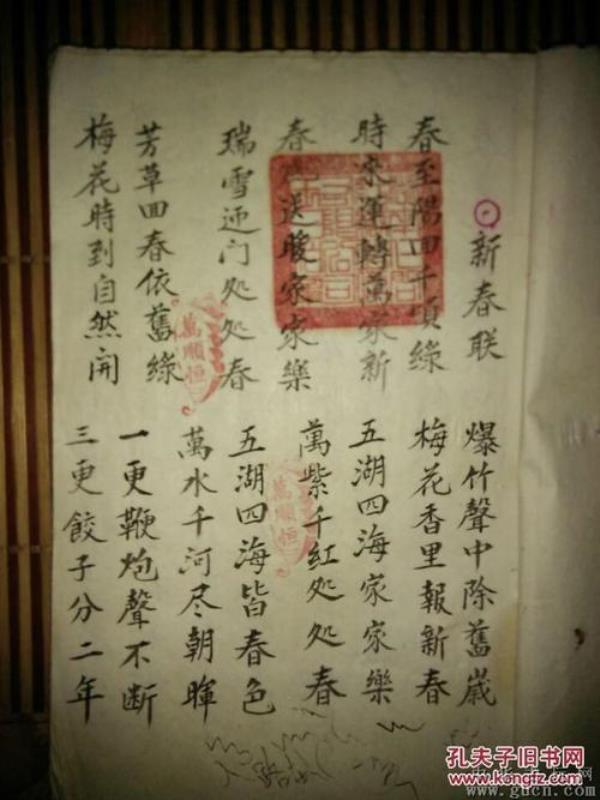 新春联
春至陽回千頃綠
時來運轉萬家新
春送暖家家樂
瑞雪迎门处处春
芳草回春依舊綠
梅花時到自然開
爆竹聲中除舊歲
梅花香里報新春
五湖四海家家樂
萬紫千红处处春
五湖四海皆春色
萬水千河尽朝暉
一更鞭炮聲不断
三更餃子分二年
萬順恒
萬順恒
孔夫子旧书网
www.gucn.com